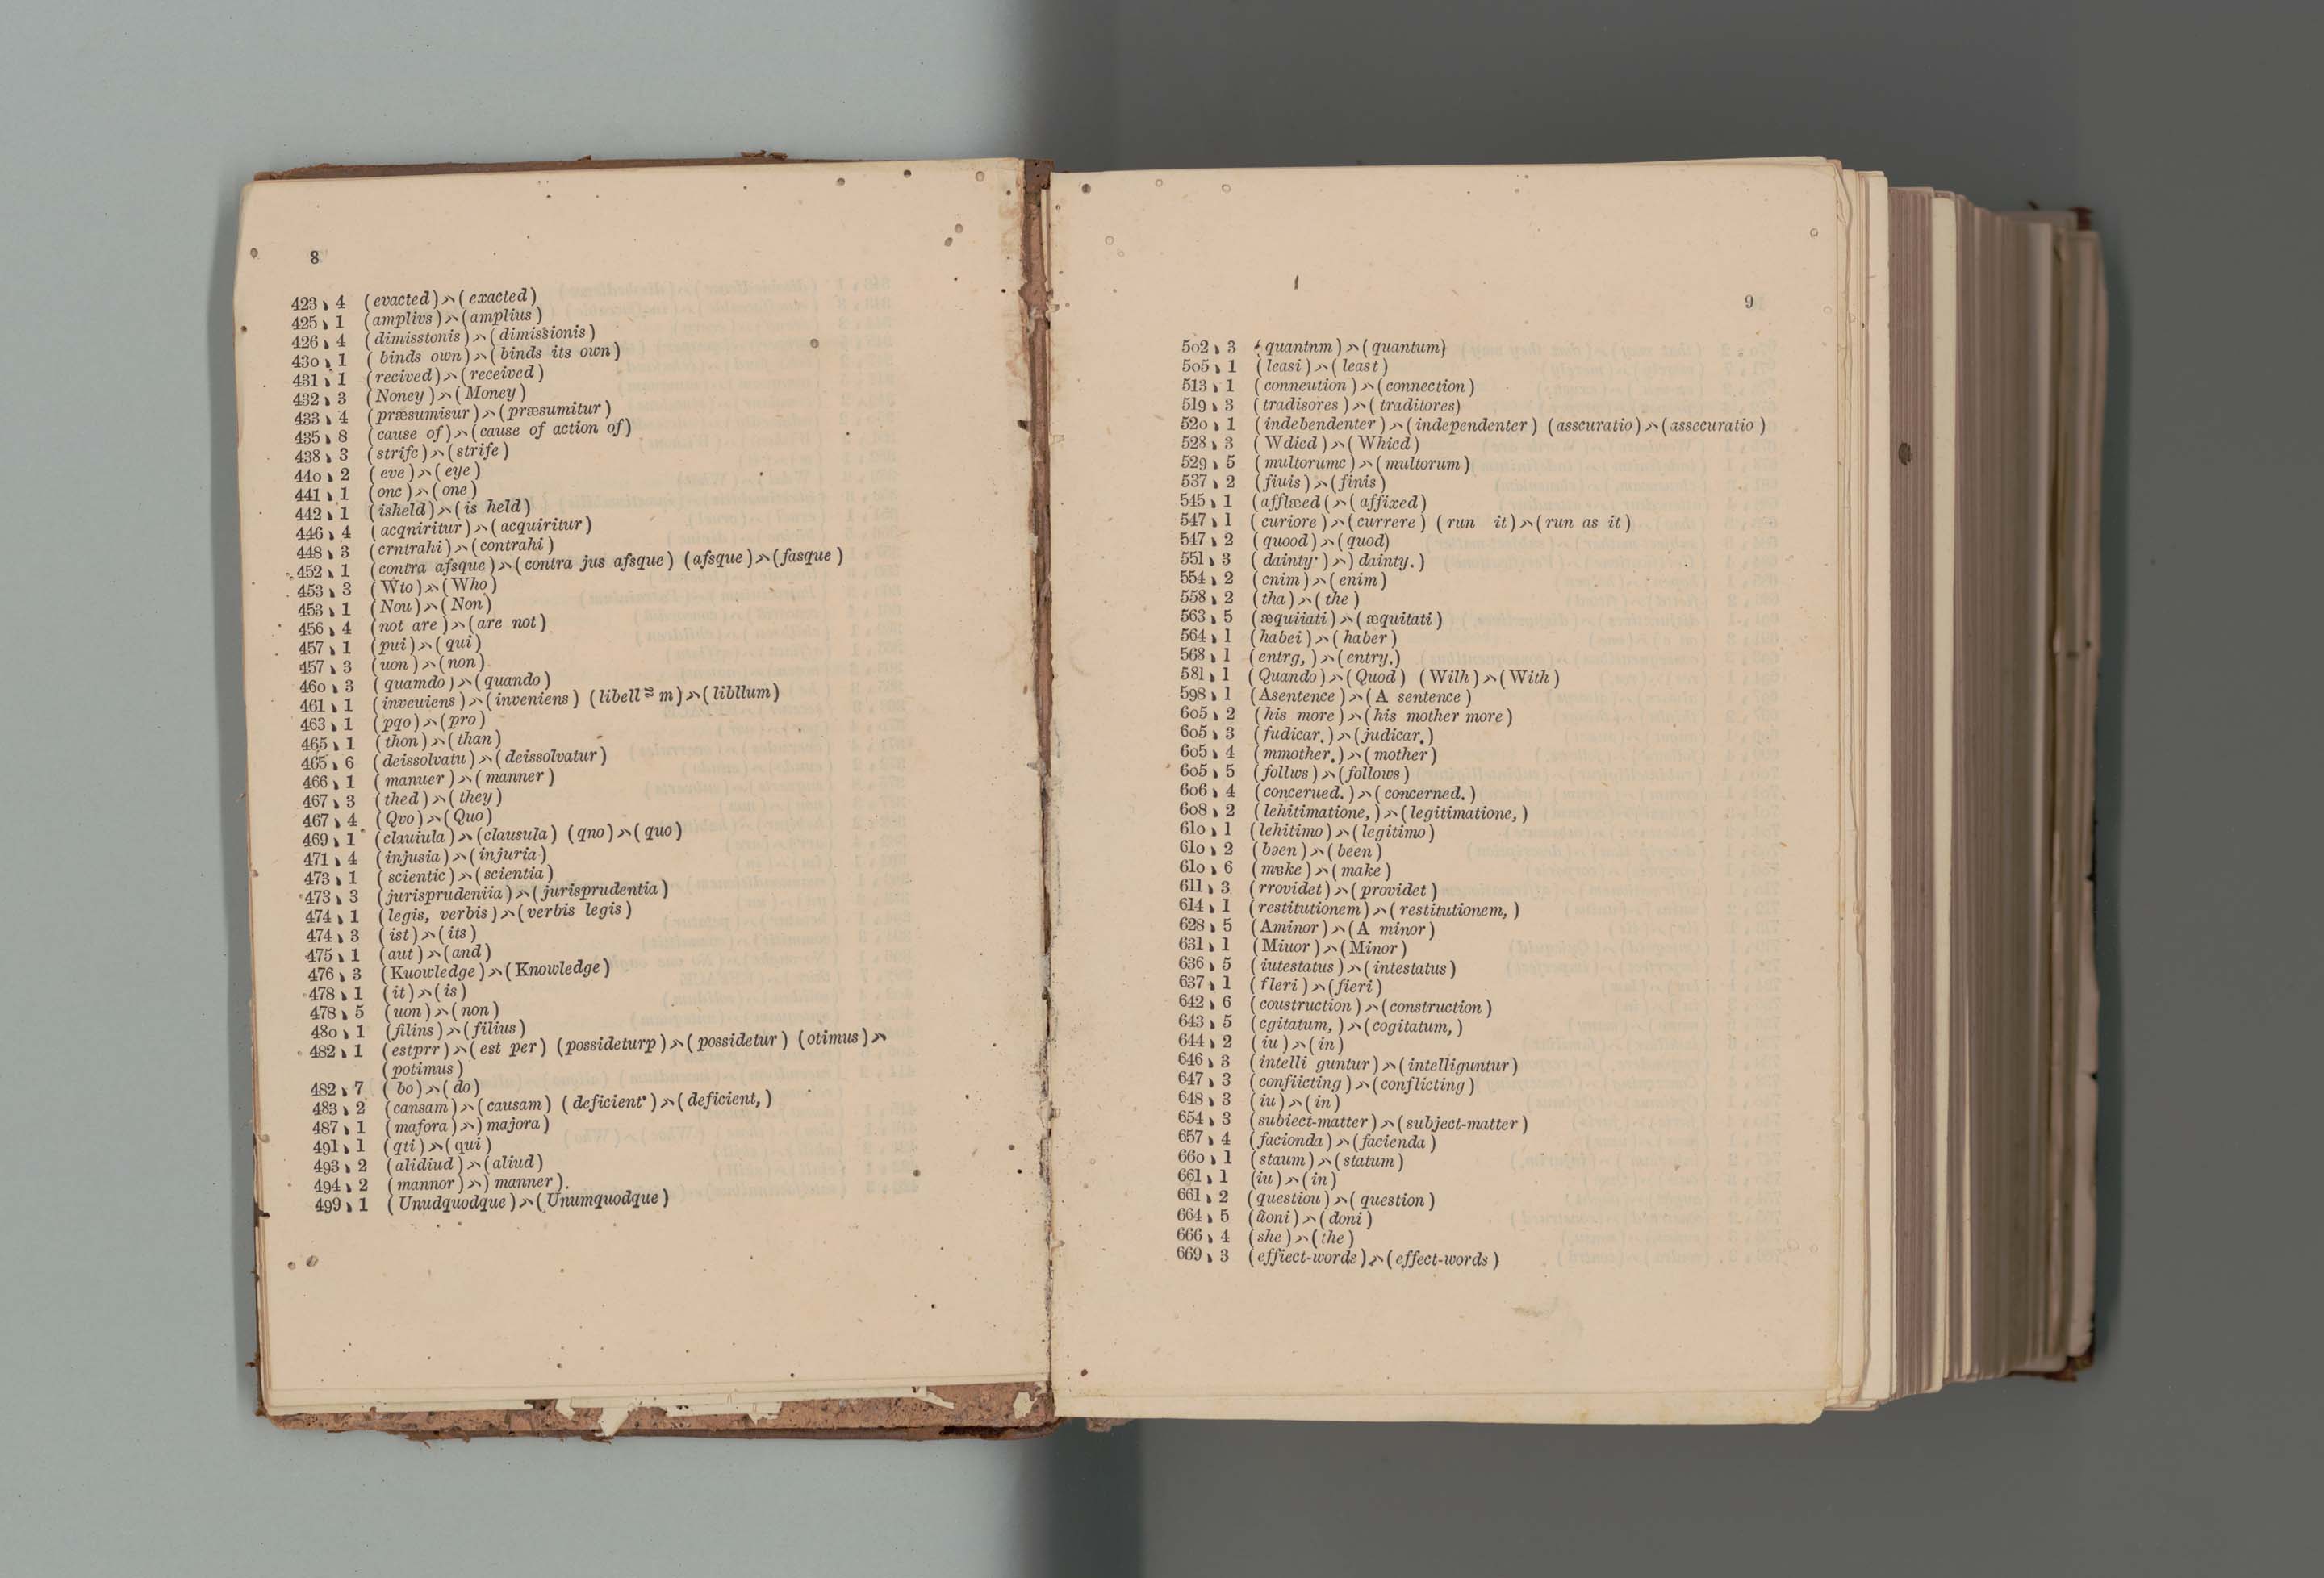 8
423、4 (evacted)ヘ(exacted)
425、1 (amplivs)ヘ(amplius)
426、4 (dimisstonis)ヘ(dimissionis)
430、1 (binds own)ヘ(binds its own)
431、1 (recived)ヘ(received)
432、3 (Noney)ヘ(Money)
433、4 (præsumisur)ヘ(præsumitur)
435、8 (cause of)ヘ(cause of action of)
438、3 (strifc)ヘ(strife)
440、2 (eve)ヘ(eye)
441、1 (onc)ヘ(one)
442、1 (isheld)ヘ(is held)
446、4 (acqniritur)ヘ(acquiritur)
448、3 (crntrahi)ヘ(contrahi)
452、1 (contra afsque)ヘ(contra jus afsque) (afsque)ヘ(fasque)
453、3 (Wto)ヘ(Who)
453、1 (Nou)ヘ(Non)
456、4 (not are)ヘ(are not)
457、1 (pui)ヘ(qui)
457、3 (uon)ヘ(non)
460、3 (quamdo)ヘ(quando)
461、1 (inveuiens)ヘ(inveniens) (libell m)ヘ(libllum)
463、1 (pqo)ヘ(pro)
465、1 (thon)ヘ(than)
465、6 (deissolvatu)ヘ(deissolvatur)
466、1 (manuer)ヘ(manner)
467、3 (thed)ヘ(they)
467、4 (Qvo)ヘ(Quo)
469、1 (clauiula)ヘ(clausula) (qno)ヘ(quo)
471、4 (injusia)ヘ(injuria)
473、1 (scientic)ヘ(scientia)
473、3 (jurisprudeniia)ヘ(jurisprudentia)
474、1 (legis, verbis)ヘ(verbis legis)
474、3 (ist)ヘ(its)
475、1 (aut)ヘ(and)
476、3 (Kuowledge)ヘ(Knowledge)
478、1 (it)ヘ(is)
478、5 (uon)ヘ(non)
480、1 (filins)ヘ(filius)
482、1 (estprr)ヘ(est per) (possideturp)ヘ(possidetur) (otimus)ヘ
(potimus)
482、7 (bo)ヘ(do)
483、2 (cansam)ヘ(causam) (deficient')ヘ(deficient,)
487、1 (mafora)ヘ)majora)
491、1 (qti)ヘ(qui)
493、2 (alidiud)ヘ(aliud)
494、2 (mannor)ヘ)manner).
499、1 (Unudquodque)ヘ(Unumquodque)
9
502、3 (quantnm)ヘ(quantum)
505、1 (leasi)ヘ(least)
513、1 (conneution)ヘ(connection)
519、3 (tradisores)ヘ(traditores)
520、1 (indebendenter)ヘ(independenter) (asscuratio)ヘ(assecuratio)
528、3 (Wdicd)ヘ(Whicd)
529、5 (multorumc)ヘ(multorum)
537、2 (fiuis)ヘ(finis)
545、1 (afflæed(ヘ(affixed)
547、1 (curiore)ヘ(currere) (run it)ヘ(run as it)
547、2 (quood)ヘ(quod)
551、3 (dainty')ヘ)dainty.)
554、2 (cnim)ヘ(enim)
558、2 (tha)ヘ(the)
563、5 (æquiiati)ヘ(æquitati)
564、1 (habei)ヘ(haber)
568、1 (entrg,)ヘ(entry.)
581、1 (Quando)ヘ(Quod) (Wilh)ヘ(With)
598、1 (Asentence)ヘ(A sentence)
605、2 (his more)ヘ(his mother more)
605、3 (fudicar.)ヘ(judicar.)
605、4 (mmother.)ヘ(mother)
605、5 (follws)ヘ(follows)
606、4 (concerued.)ヘ(concerned.)
608、2 (lehitimatione,)ヘ(legitimatione,)
610、1 (lehitimo)ヘ(legitimo)
610、2 (bɔen)ヘ(been)
610、6 (mɐke)ヘ(make)
611、3 (rrovidet)ヘ(providet)
614、1 (restitutionem)ヘ(restitutionem,)
628、5 (Aminor)ヘ(A minor)
631、1 (Miuor)ヘ(Minor)
636、5 (iutestatus)ヘ(intestatus)
637、1 (fleri)ヘ(fieri)
642、6 (coustruction)ヘ(construction)
643、5 (cgitatum,)ヘ(cogitatum,)
644、2 (iu)ヘ(in)
646、3 (intelli guntur)ヘ(intelliguntur)
647、3 (confiicting)ヘ(conflicting)
648、3 (iu)ヘ(in)
654、3 (subiect-matter)ヘ(subject-matter)
657、4 (facionda)ヘ(facienda)
660、1 (staum)ヘ(statum)
661、1 (iu)ヘ(in)
661、2 (questiou)ヘ(question)
664、5 (ƌoni)ヘ(doni)
666、4 (she)ヘ(the)
669、3 (effiect-words)ヘ(effect-words)